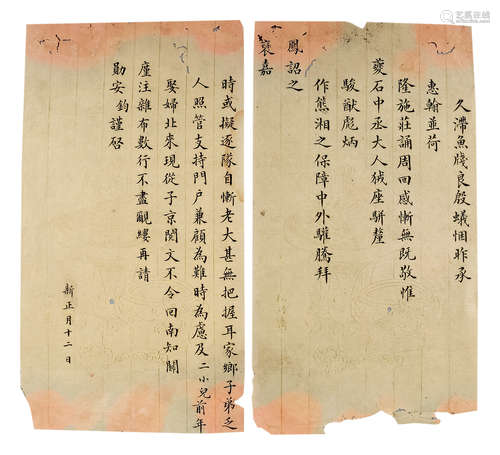 久滯魚牋良殷蟻悃昨承
惠翰並荷
隆施莊誦周回感慚無既敬惟
夔石中丞大人绒座駢釐
駿猷彪炳
作熊湘之保障中外騰拜
鳳詔之
褒嘉
時或擬逐隊自慚老大甚無把握耳家鄉子弟乏
人照管支持門戶兼顧為難時為慮及二小兒前年
娶婦北來現從子京閱文不令回南知關
廑注雜布數行不盡覼縷再請
勛安鈞謹啓
新正月十二日